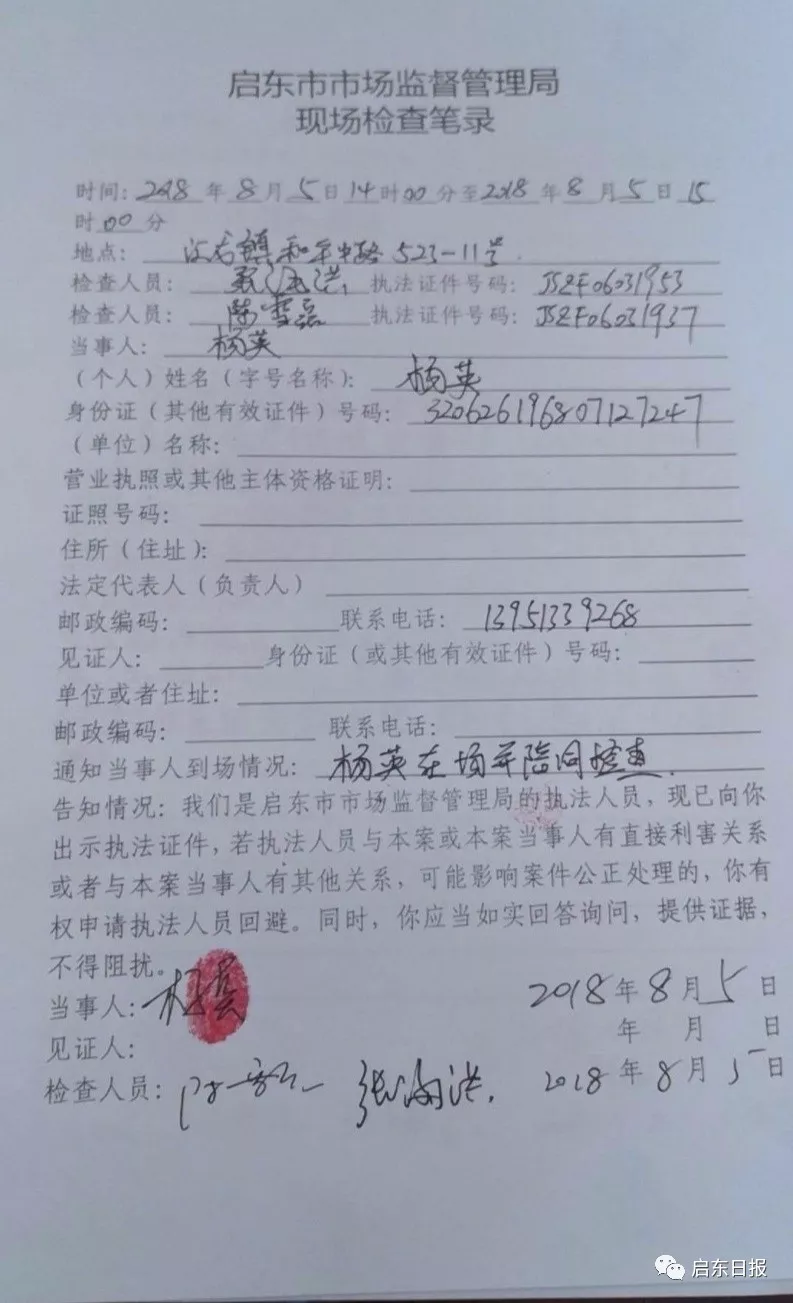 启东市市场监督管理局
现场检查笔录
时间：2018年8月5日14时00分至2018年8月5日15
时00分
地点：汇龙镇和平中路523-11号.
检查人员：洪 执法证件号码：JSZF06031953
检查人员：陈雪磊 执法证件号码：JSZF06031937
当事人：杨英
（个人）姓名（字号名称）：杨英
身份证（其他有效证件）号码：320626196807127247
（单位）名称：
营业执照或其他主体资格证明：
证照号码：
住所（住址）：
法定代表人（负责人）
邮政编码： 联系电话：13951339268
见证人： 身份证（或其他有效证件）号码：
单位或者住址：
邮政编码： 联系电话：
通知当事人到场情况：杨英在场并陪同检查.
告知情况：我们是启东市市场监督管理局的执法人员，现已向你
出示执法证件，若执法人员与本案或本案当事人有直接利害关系
或者与本案当事人有其他关系，可能影响案件公正处理的，你有
权申请执法人员回避。同时，你应当如实回答询问，提供证据，
不得阻扰。
当事人：杨英 2018年8月5日
见证人： 年 月 日
检查人员： 张海洪. 2018年8月5日
启东日报